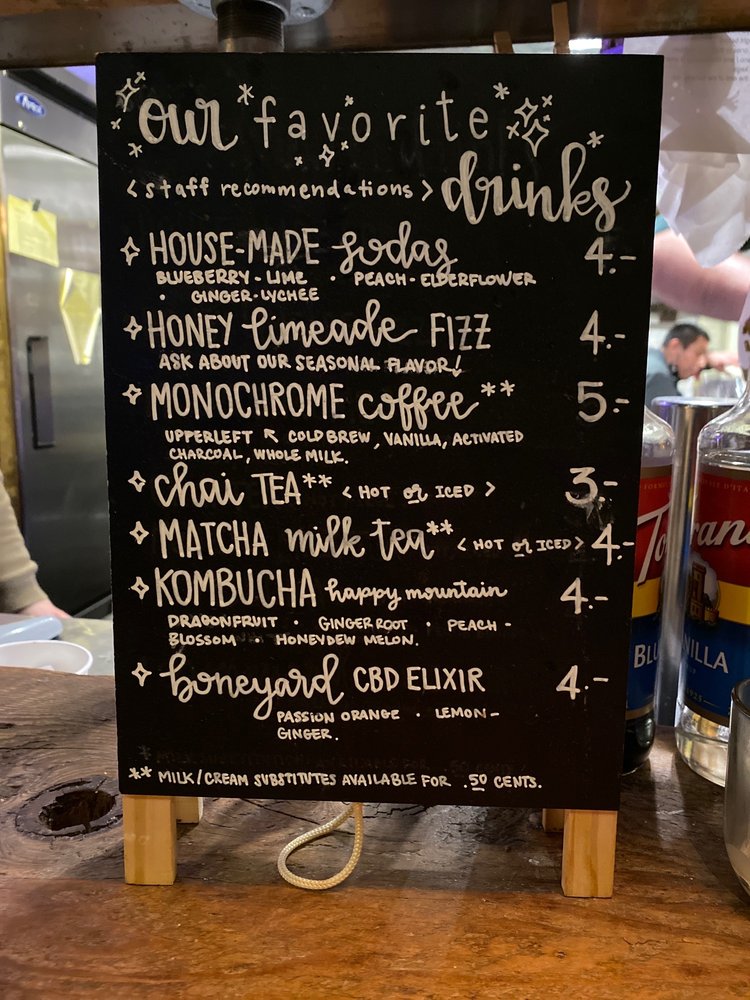 our favorite
<staff recommendations> drinks
HOUSE-MADE sodas 4.-
BLUEBERRY-LIME · PEACH-ELDERFLOWER
· GINGER-LYCHEE
HONEY limeade FIZZ 4.-
ASK ABOUT OUR SEASONAL FLAVOR!
MONOCHROME coffee** 5.-
UPPERLEFT ↖ COLD BREW, VANILLA, ACTIVATED
CHARCOAL, WHOLE MILK.
chai TEA** <HOT or ICED> 3.-
MATCHA milk tea** <HOT or ICED> 4.-
KOMBUCHA happy mountain 4.-
DRAGONFRUIT · GINGER ROOT · PEACH-
BLOSSOM · HONEYDEW MELON.
boneyard CBD ELIXIR 4.-
PASSION ORANGE · LEMON-
GINGER.
** MILK/CREAM SUBSTITUTES AVAILABLE FOR .50 CENTS.